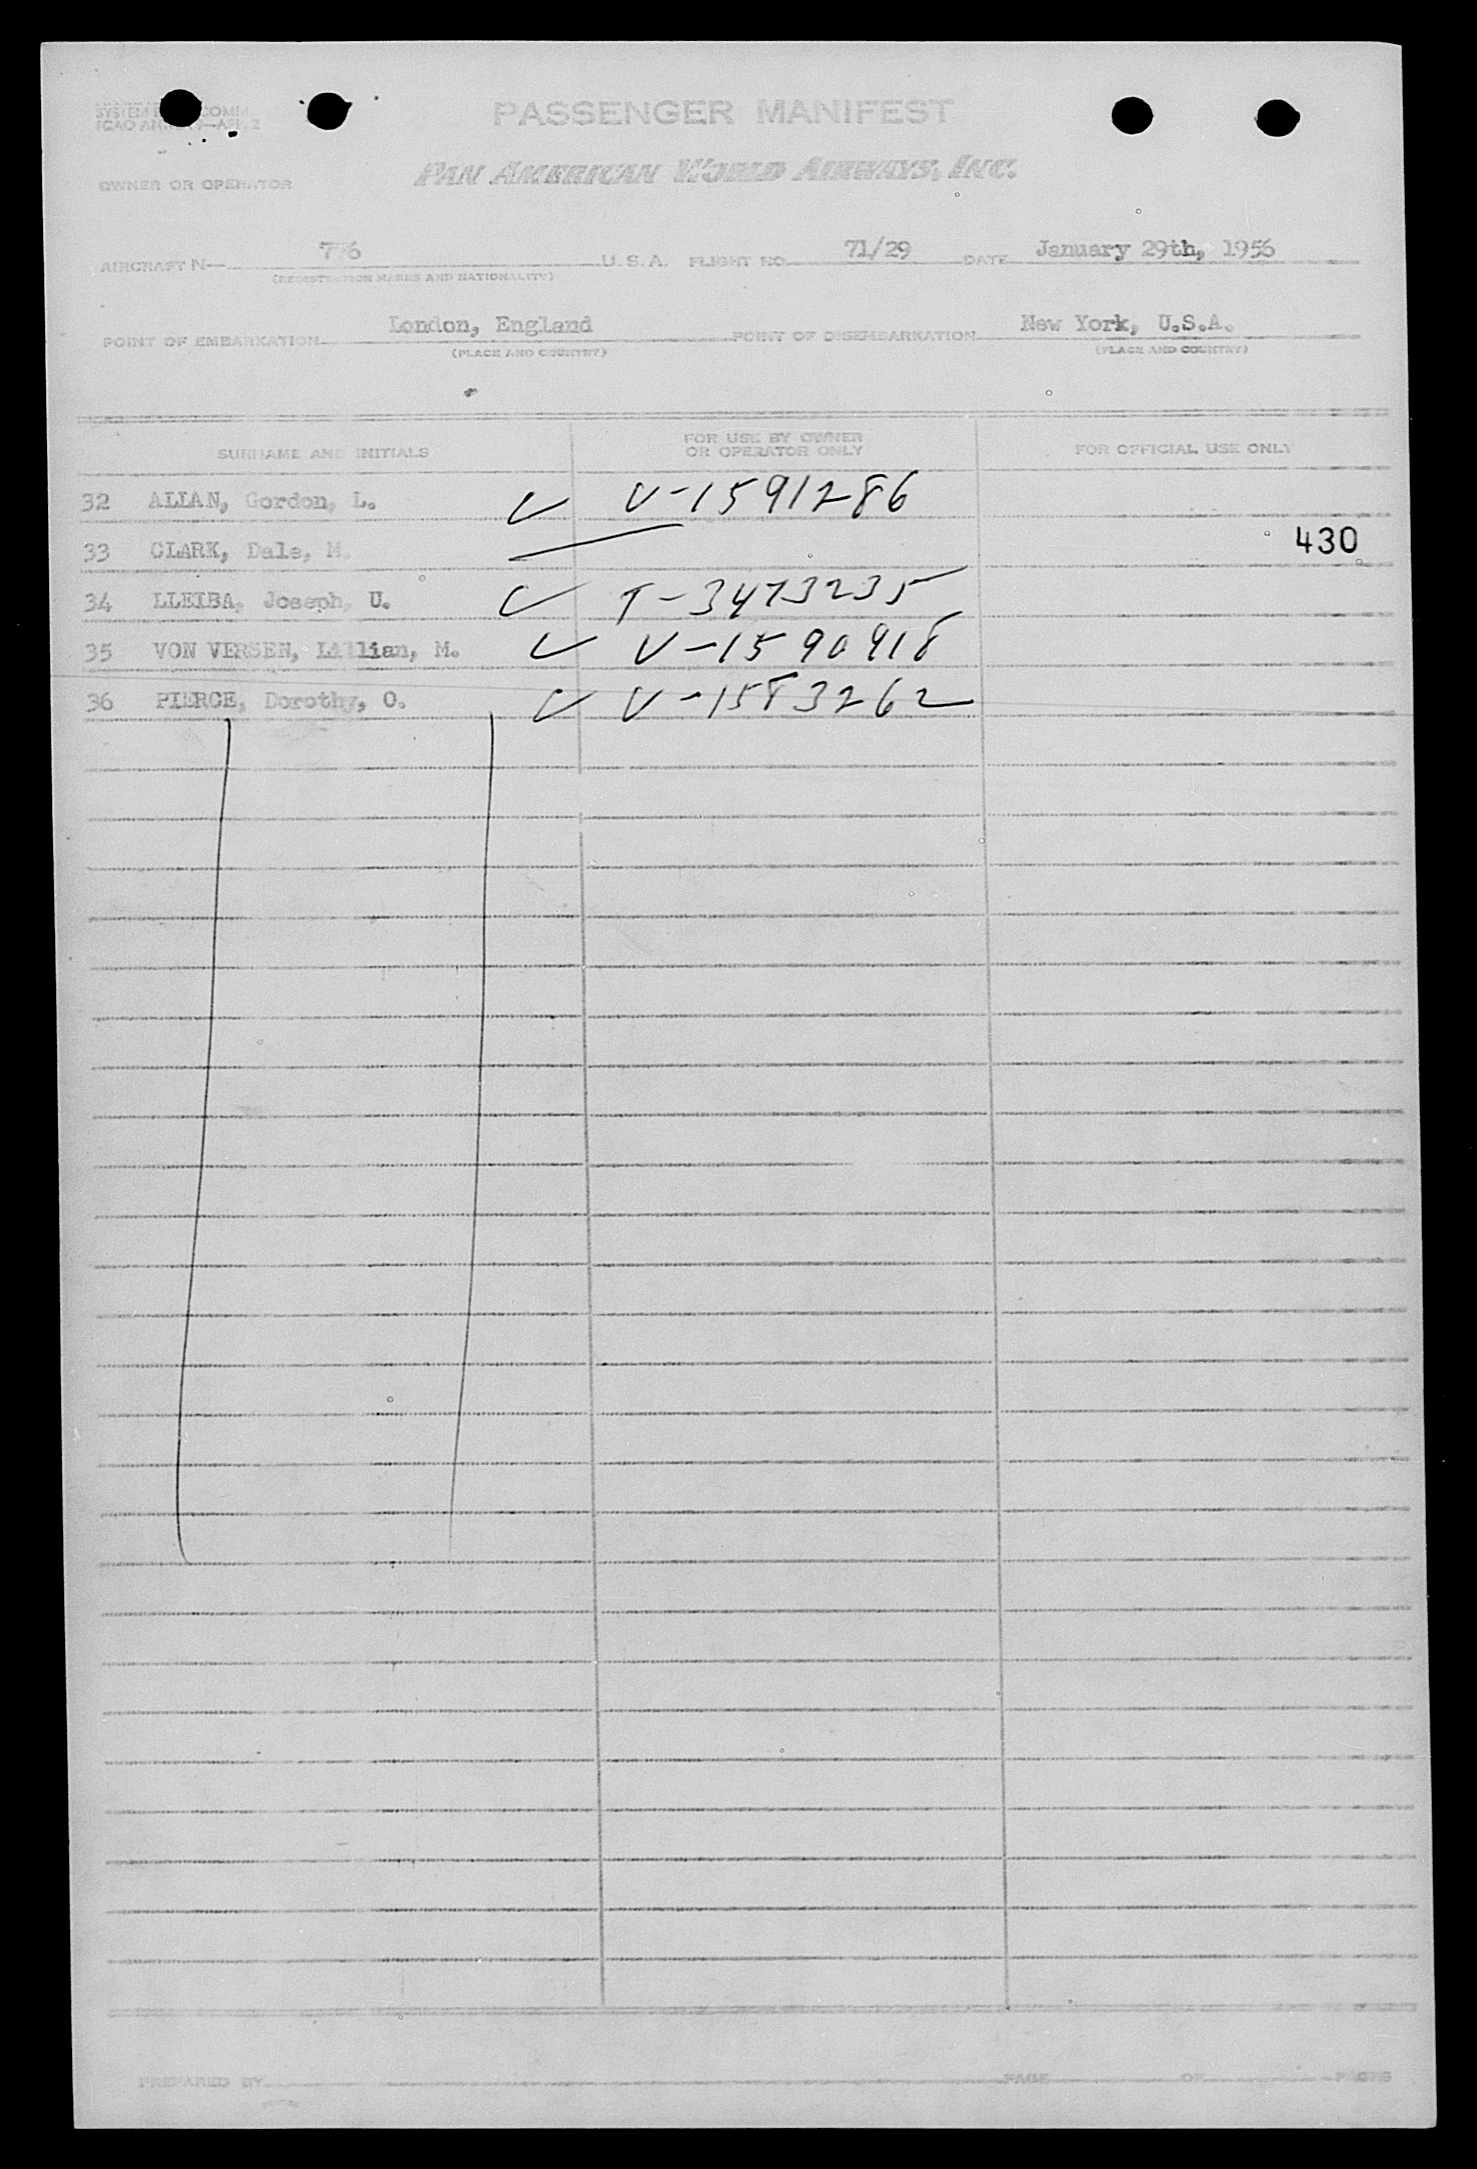 PASSENGER MANIFEST
PAN AMERICAN WORLD AIRWAYS, INC.
OWNER OR OPERATOR
AIRCRAFT N— U.S.A. FLIGHT NO. 71/29 DATE January 29th, 1956
(REGISTRATION MARKS AND NATIONALITY)
POINT OF EMBARKATION London, England POINT OF DISEMBARKATION New York, U.S.A.
(PLACE AND COUNTRY) (PLACE AND COUNTRY)
SURNAME AND INITIALS FOR USE BY OWNER OR OPERATOR ONLY FOR OFFICIAL USE ONLY
32 ALLAN, Gordon, L. V-1591286
33 CLARK, Dale, M. 430
34 LLEIBA, Joseph, U. T-3473235
35 VON VERSEN, Lillian, M. V-1590918
36 PIERCE, Dorothy, O. V-1583262
PREPARED BY PAGE OF PAGES